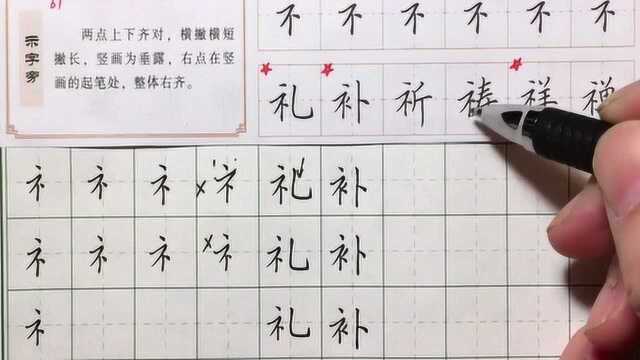 示字旁
两点上下齐对，横撇横短
撇长，竖画为垂露，右点在竖
画的起笔处，整体右齐。
不 不 不 不 不 不
礼 补 祈 祷 祥 禅
礻 礻 礻 礻 礼 补
礻 礻 礻 礻 礼 补
礻 礼 补